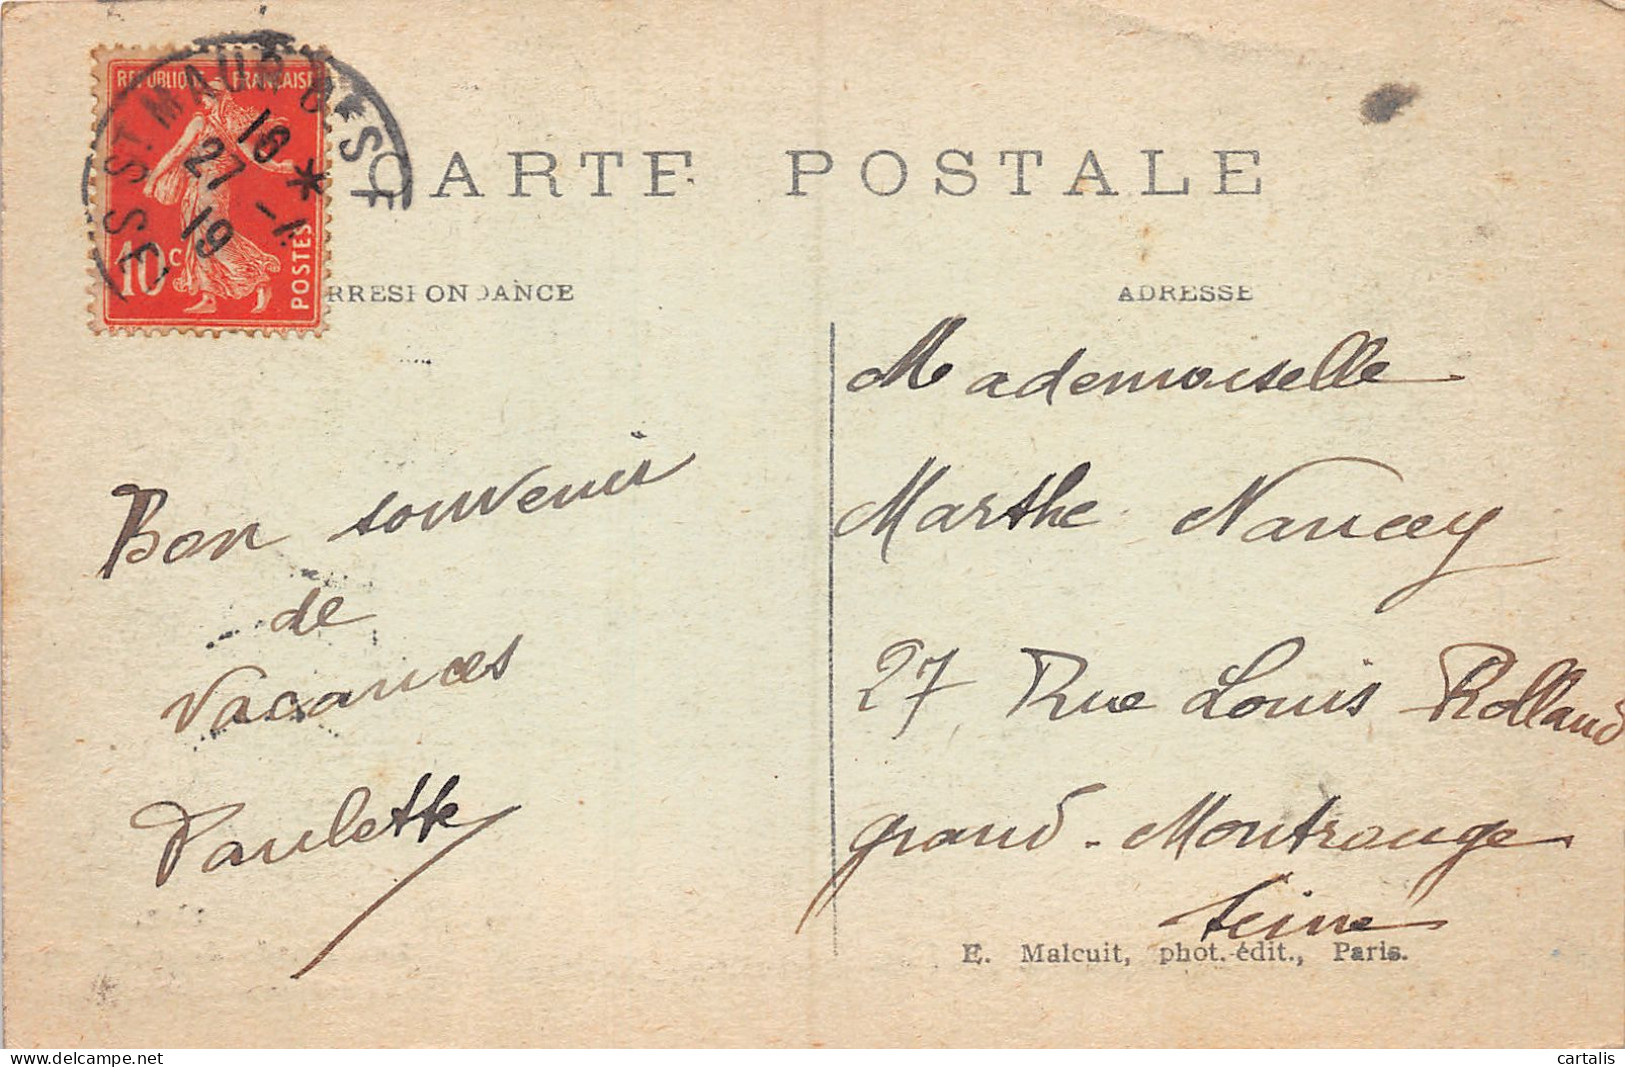 REPUBLIQUE FRANÇAISE
10c
POSTES
ST MAUR
16 *
27 - 1
19
CARTE POSTALE
RRESPONDANCE
ADRESSE
Mademoiselle
Marthe
27 Rue Louis Rolland
grand-Montrouge
Seine
Bon souvenir
de
Vacances
Paulette
E. Malcuit, phot.-édit., Paris.
cartalis
delcampe.net